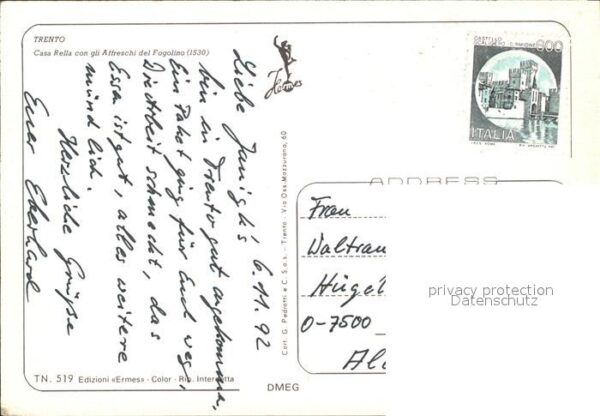 TRENTO
Casa Rella con gli Affreschi del Fogolino (1530)
Liebe Janigk's 6.11.92
bin in Trento gut angekommen,
Ein Paket ging für Euch weg,
Die Arbeit schmeckt, das
Essen ist gut, alles weitere
mündlich.
Herzliche Grüße
Euer Eberhard
TN. 519 Edizioni «Ermes» - Color - Rip. Interdetta
Cart. G. Pedrotti e C. S.a.s. - Trento - Via Oss. Mazzurana, 60
DMEG
CASTELLO
SCALIGERO - SIRMIONE
600
ITALIA
ADDRESS
Frau
Waltrau
Hügel
O-7500
privacy protection
Datenschutz